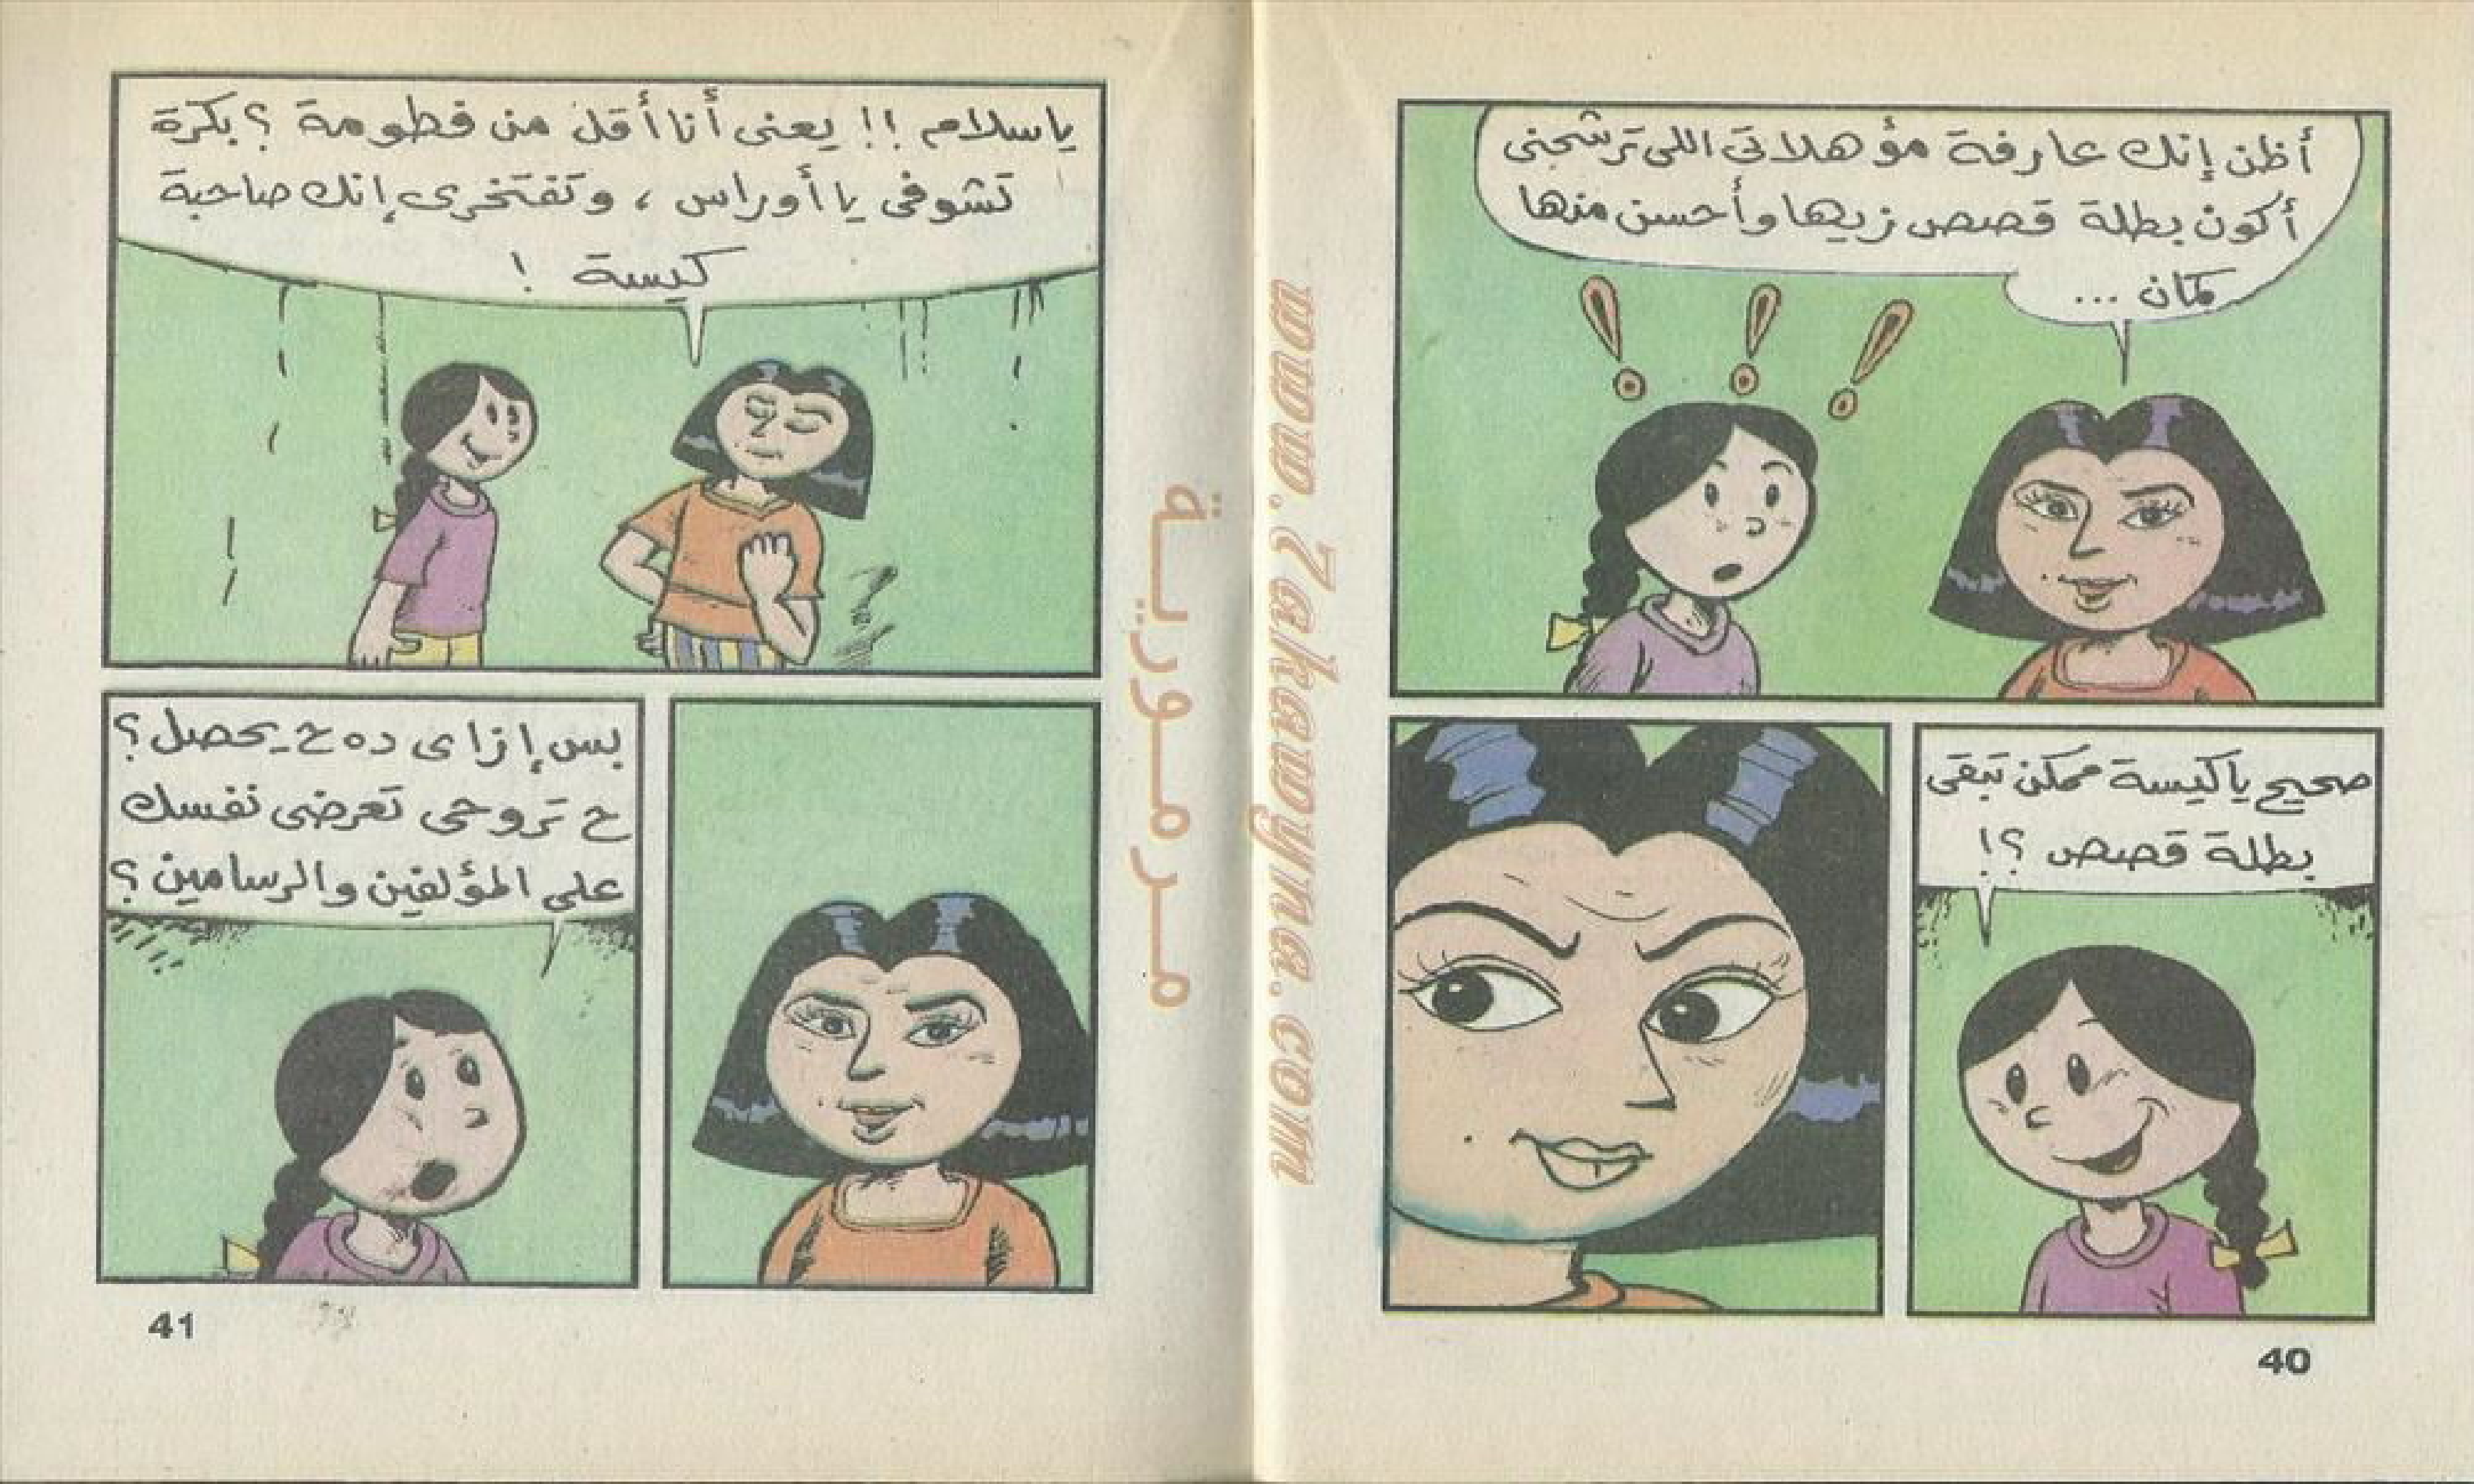 أظن إنك عارفة مؤهلاتى اللى ترشحنى
أكون بطلة قصص زيها وأحسن منها
كمان ...
صحيح ياكيسة ممكن تبقى
بطلة قصص ؟!
40
www.Zakawyna.com
مرمورية
ياسلام !! يعنى أنا أقل من فطومة ؟ بكرة
تشوفى يا أوراس ، وتفتخرى إنك صاحبة
كيسة !
بس إزاى ده ح يحصل ؟
ح تروحى تعرضى نفسك
على المؤلفين والرسامين ؟
41